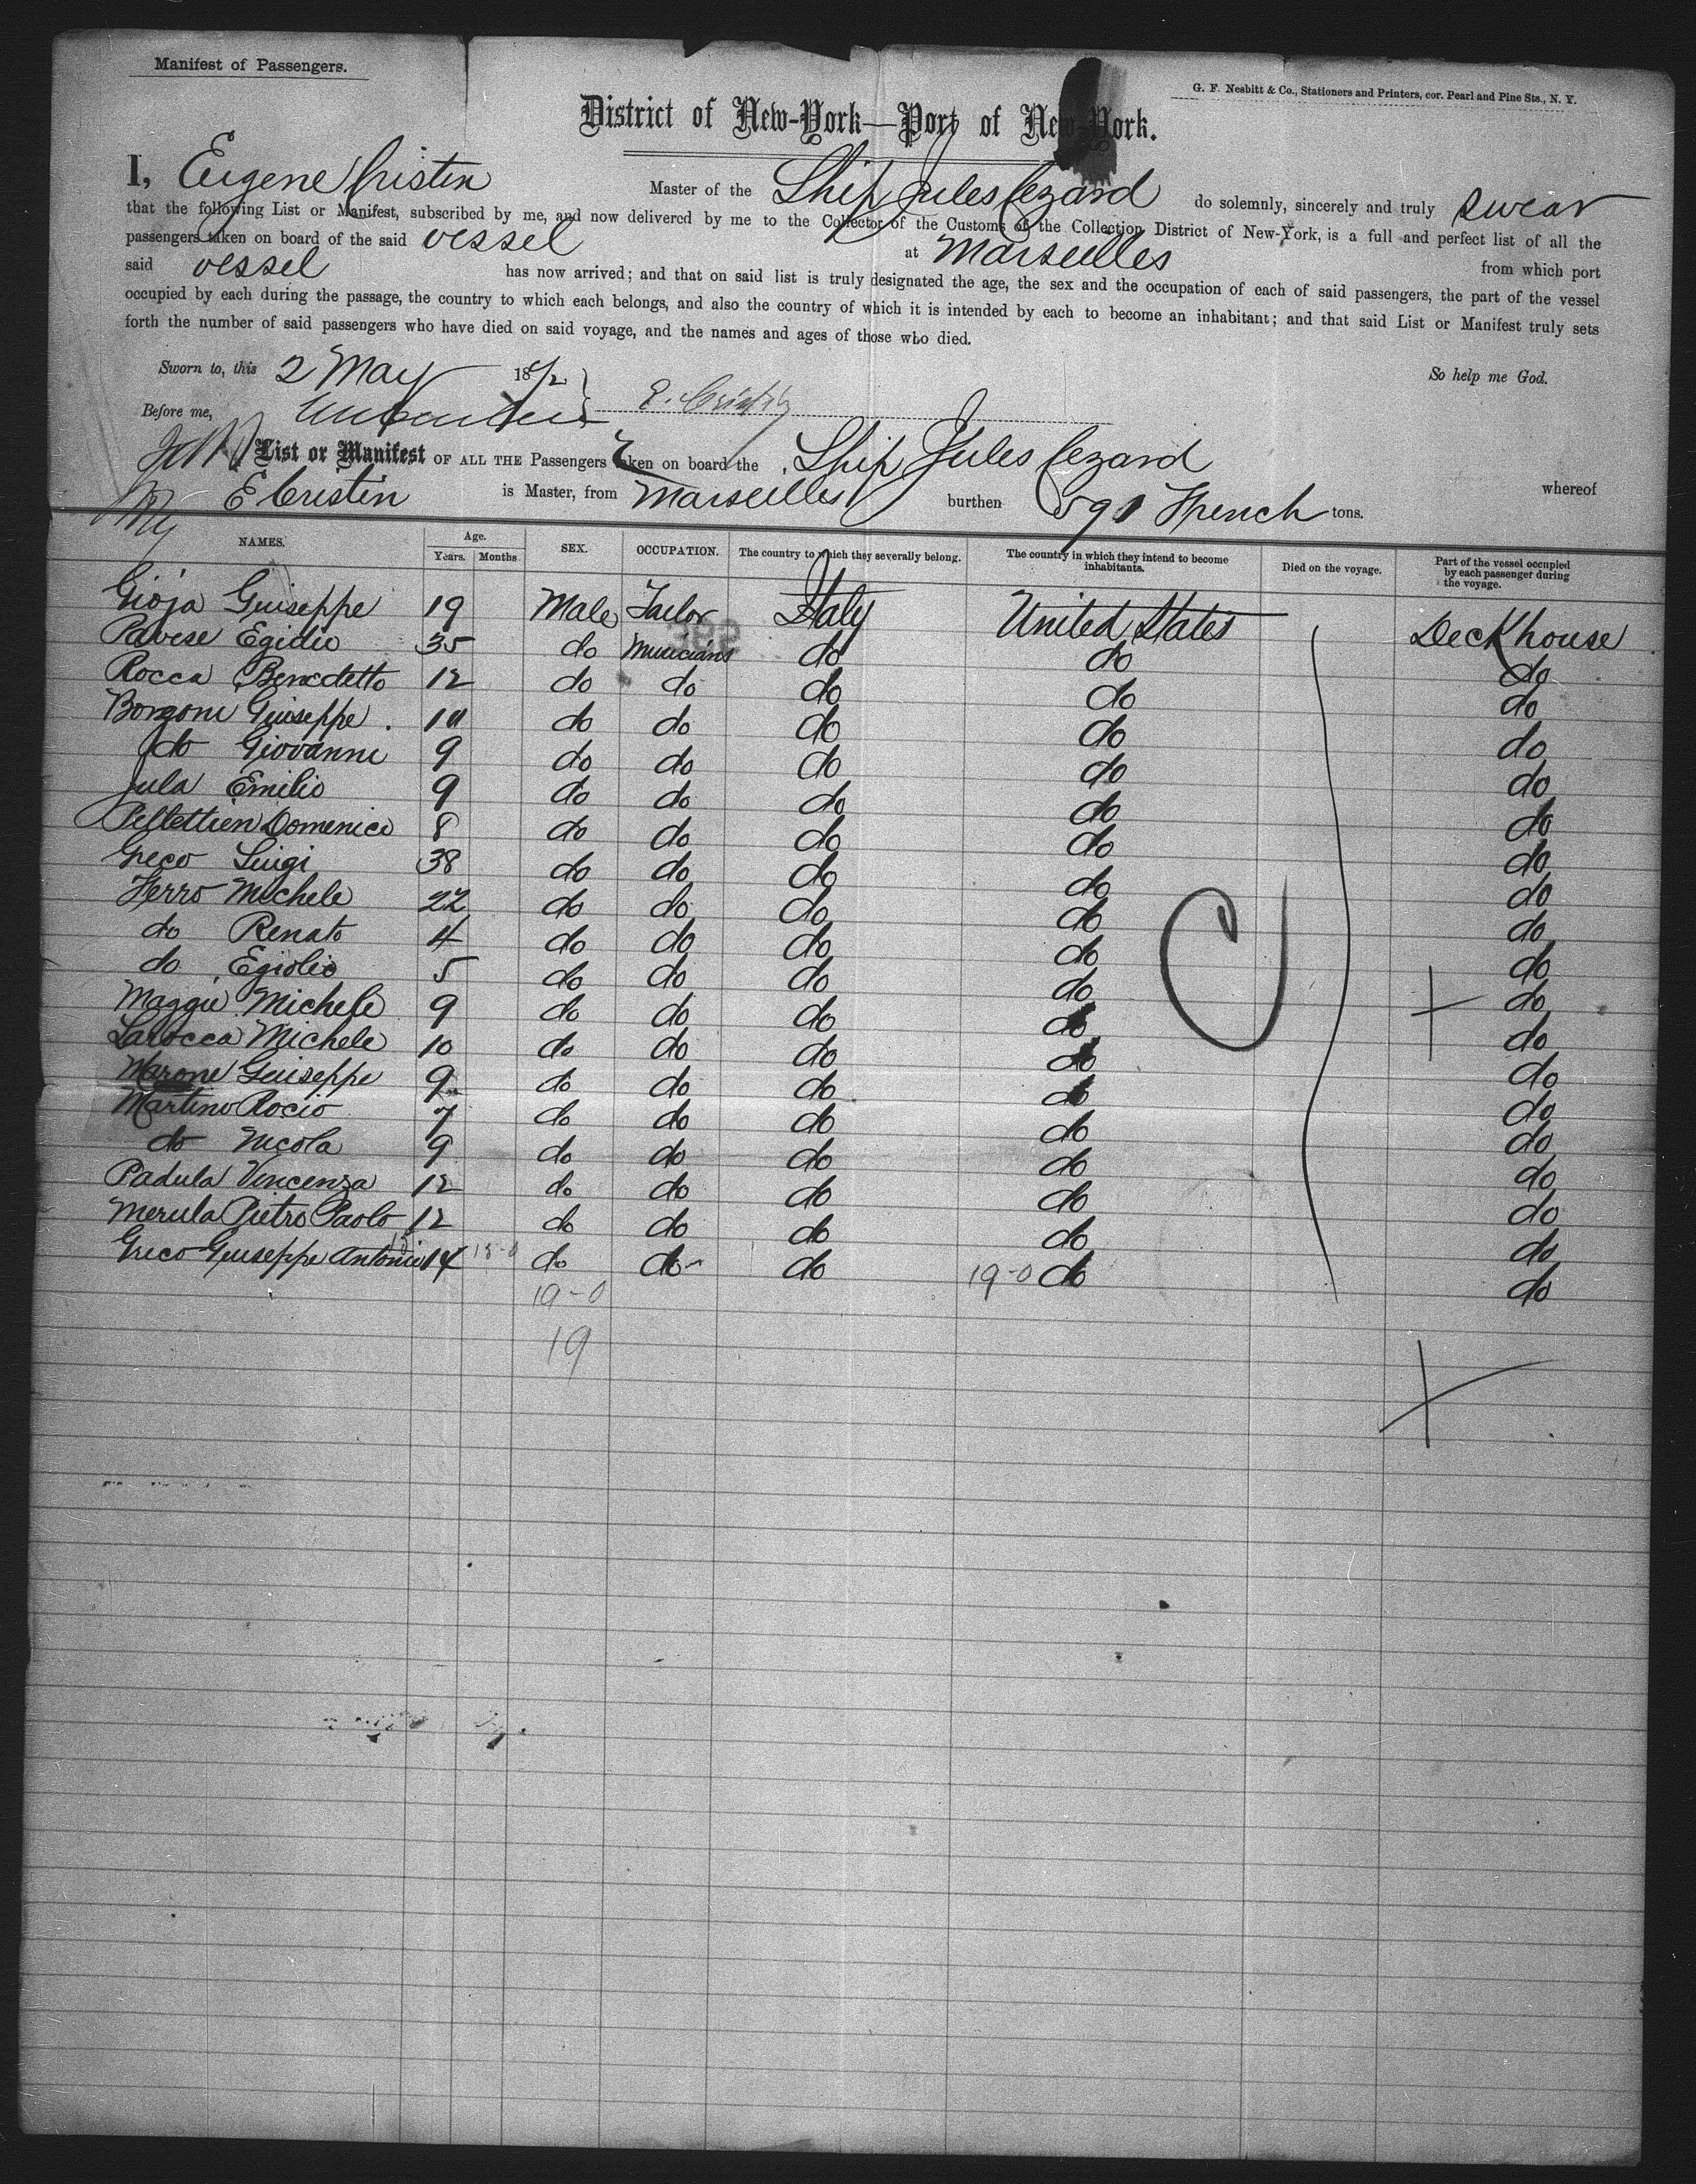 Manifest of Passengers.
G. F. Nesbitt & Co., Stationers and Printers, cor. Pearl and Pine Sts., N. Y.
District of New-York—Port of New-York.
I, Eugene Cristin Master of the Ship Jules Cezard do solemnly, sincerely and truly swear
that the following List or Manifest, subscribed by me, and now delivered by me to the Collector of the Customs of the Collection District of New-York, is a full and perfect list of all the
passengers taken on board of the said vessel at Marseilles from which port
said vessel has now arrived; and that on said list is truly designated the age, the sex and the occupation of each of said passengers, the part of the vessel
occupied by each during the passage, the country to which each belongs, and also the country of which it is intended by each to become an inhabitant; and that said List or Manifest truly sets
forth the number of said passengers who have died on said voyage, and the names and ages of those who died.
Sworn to, this 2 May 1872 So help me God.
Before me, E. Cristin
List or Manifest OF ALL THE Passengers taken on board the Ship Jules Cezard whereof
E Cristin is Master, from Marseilles burthen 591 French tons.
NAMES. Age. Years. Months SEX. OCCUPATION. The country to which they severally belong. The country in which they intend to become inhabitants. Died on the voyage. Part of the vessel occupied by each passenger during the voyage.
Gioja Guiseppe 19 Male Tailor Italy United States Deck house
Pavese Egidio 35 do Musicians do do do
Rocca Benedetto 12 do do do do do
Borgoni Guiseppe 10 do do do do do
do Giovanni 9 do do do do do
Jula Emilio 9 do do do do do
Pellettieri Domenico 8 do do do do do
Greco Luigi 38 do do do do do
Ferro Michele 22 do do do do do
do Renato 4 do do do do do
do Egidio 5 do do do do do
Maggie Michele 9 do do do do do
Larocca Michele 10 do do do do do
Marone Guiseppe 9 do do do do do
Martino Rocio 7 do do do do do
do Nicola 9 do do do do do
Padula Vincenza 12 do do do do do
Merula Pietro Paolo 12 do do do do do
Greco Guiseppe Antonio 14 do do do 19-0 do do
19-0
19